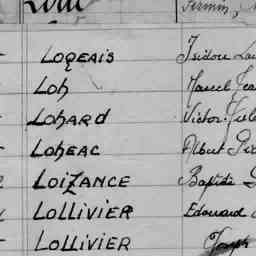 Firmin,
LOGEAIS Isidore
LOH Marcel
LOHARD Victor
LOHEAC Albert
LOIZANCE Baptiste
LOLLIVIER Edouard
LOLLIVIER Joseph